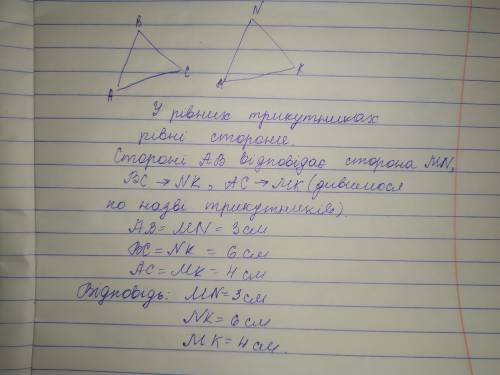 B
C
A
N
K
M
У рівних трикутниках
рівні сторони.
Стороні AB відповідає сторона MN,
BC → NK, AC → MK (дивимося
по назві трикутників).
AB = MN = 3 см
BC = NK = 6 см
AC = MK = 4 см
Відповідь: MN = 3 см
NK = 6 см
MK = 4 см.